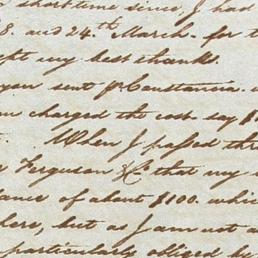 short time since, I had
8. and 24.th March - for t
ept my best thanks.
you sent pr Constancia
charged the cost say $
When I passed thr
Ferguson & Co that my
ance of about $100. which
here, but as I am not a
particularly obliged by